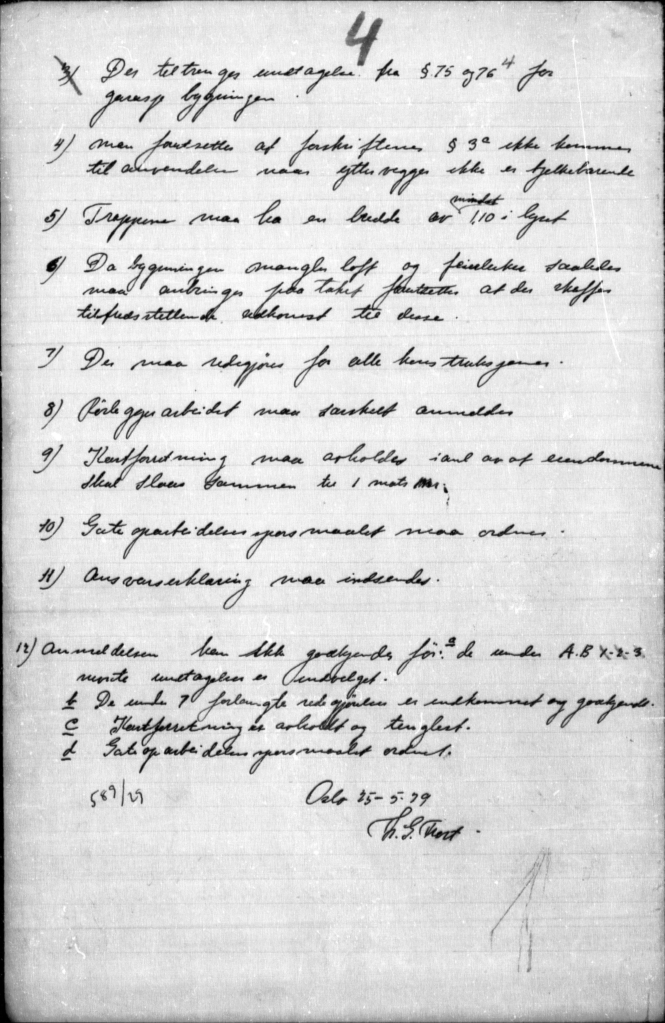 4
3) Der tiltrenges undtagelse fra § 75 og 76⁴ for
garasje bygningen.
4) Man forutsetter at forskriftenes § 3ª ikke kommer
til anvendelse naar yttervegger ikke er bjelkebærende
5) Trappene maa ha en bredde av mindst 1,10 i lyset
6) Da bygningen mangler loft og feieluker saaledes
maa anbringes paa taket forutsettes at der skaffes
tilfredsstillende adkomst til disse.
7) Der maa redegjøres for alle konstruksjoner.
8) Rørleggerarbeidet maa særskilt anmeldes
9) Kartforretning maa avholdes i anl av at eiendommene
skal slaaes sammen til 1 matr nr.
10) Gateoparbeidelsesspørsmaalet maa ordnes.
11) Ansvarserklæring maa indsendes.
12) Anmeldelsen kan ikke godkjendes før: a de under A.B 1-2-3
nævnte undtagelser er indvilget.
b De under 7 forlangte redegjørelser er indkommet og godkjendt.
c Kartforretning er avholdt og tinglest.
d Gateoparbeidelsesspørsmaalet ordnet.
589/29
Oslo 25-5-29